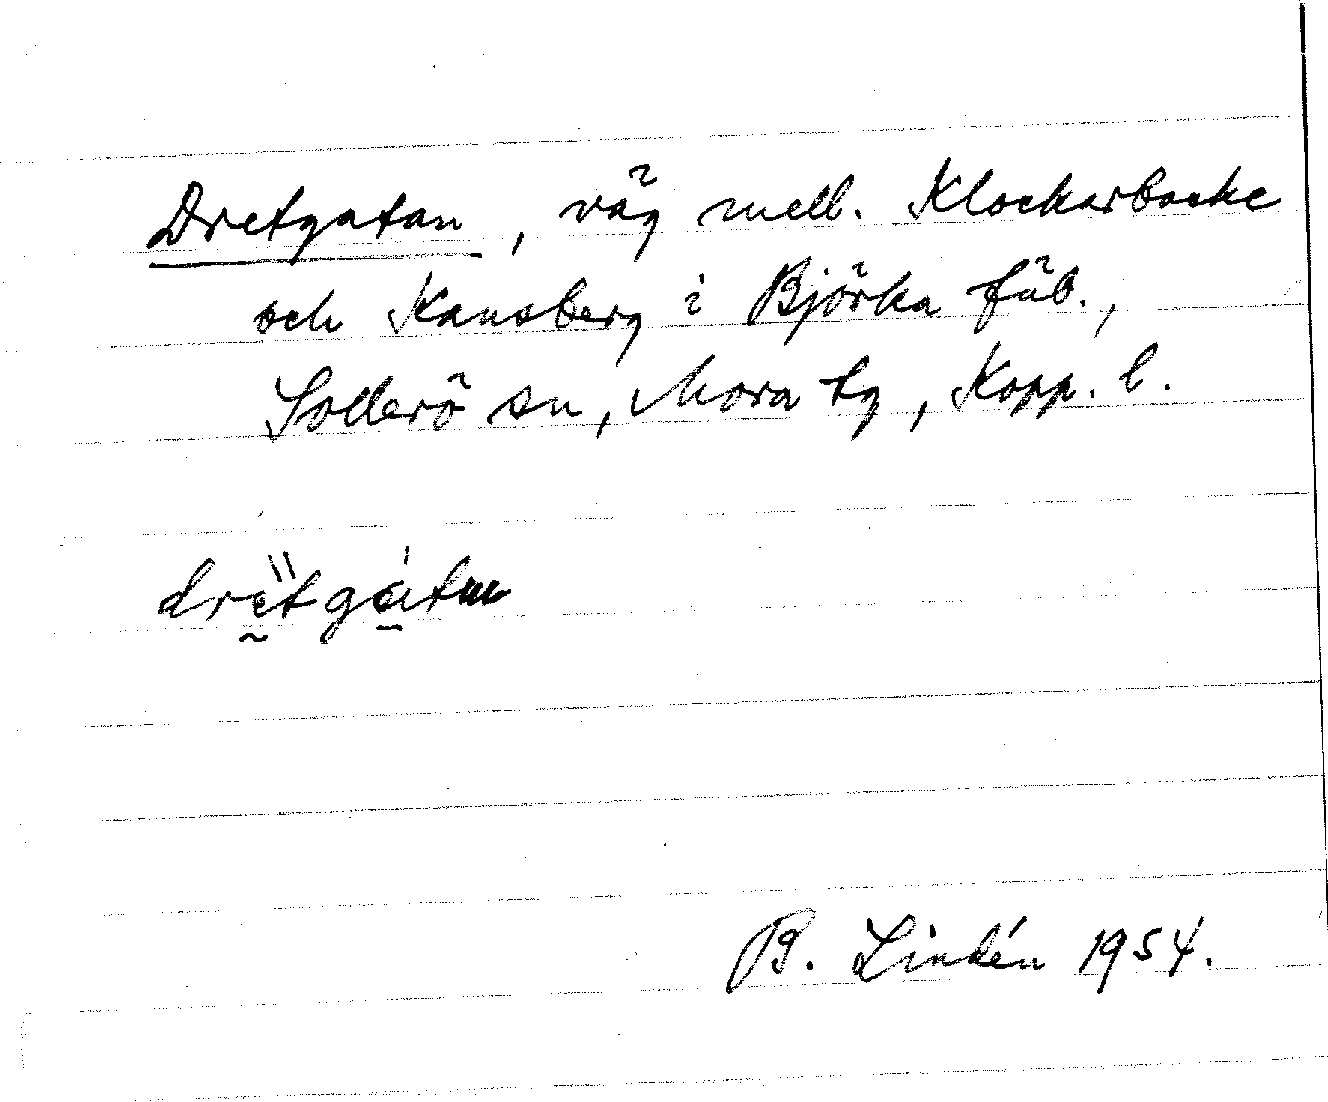 Dretgatan, väg mell. Klockarbacke
och Kansberg i Björka fäb.,
Sollerö sn, Mora tg, Kopp. l.
B. Lindén 1954.